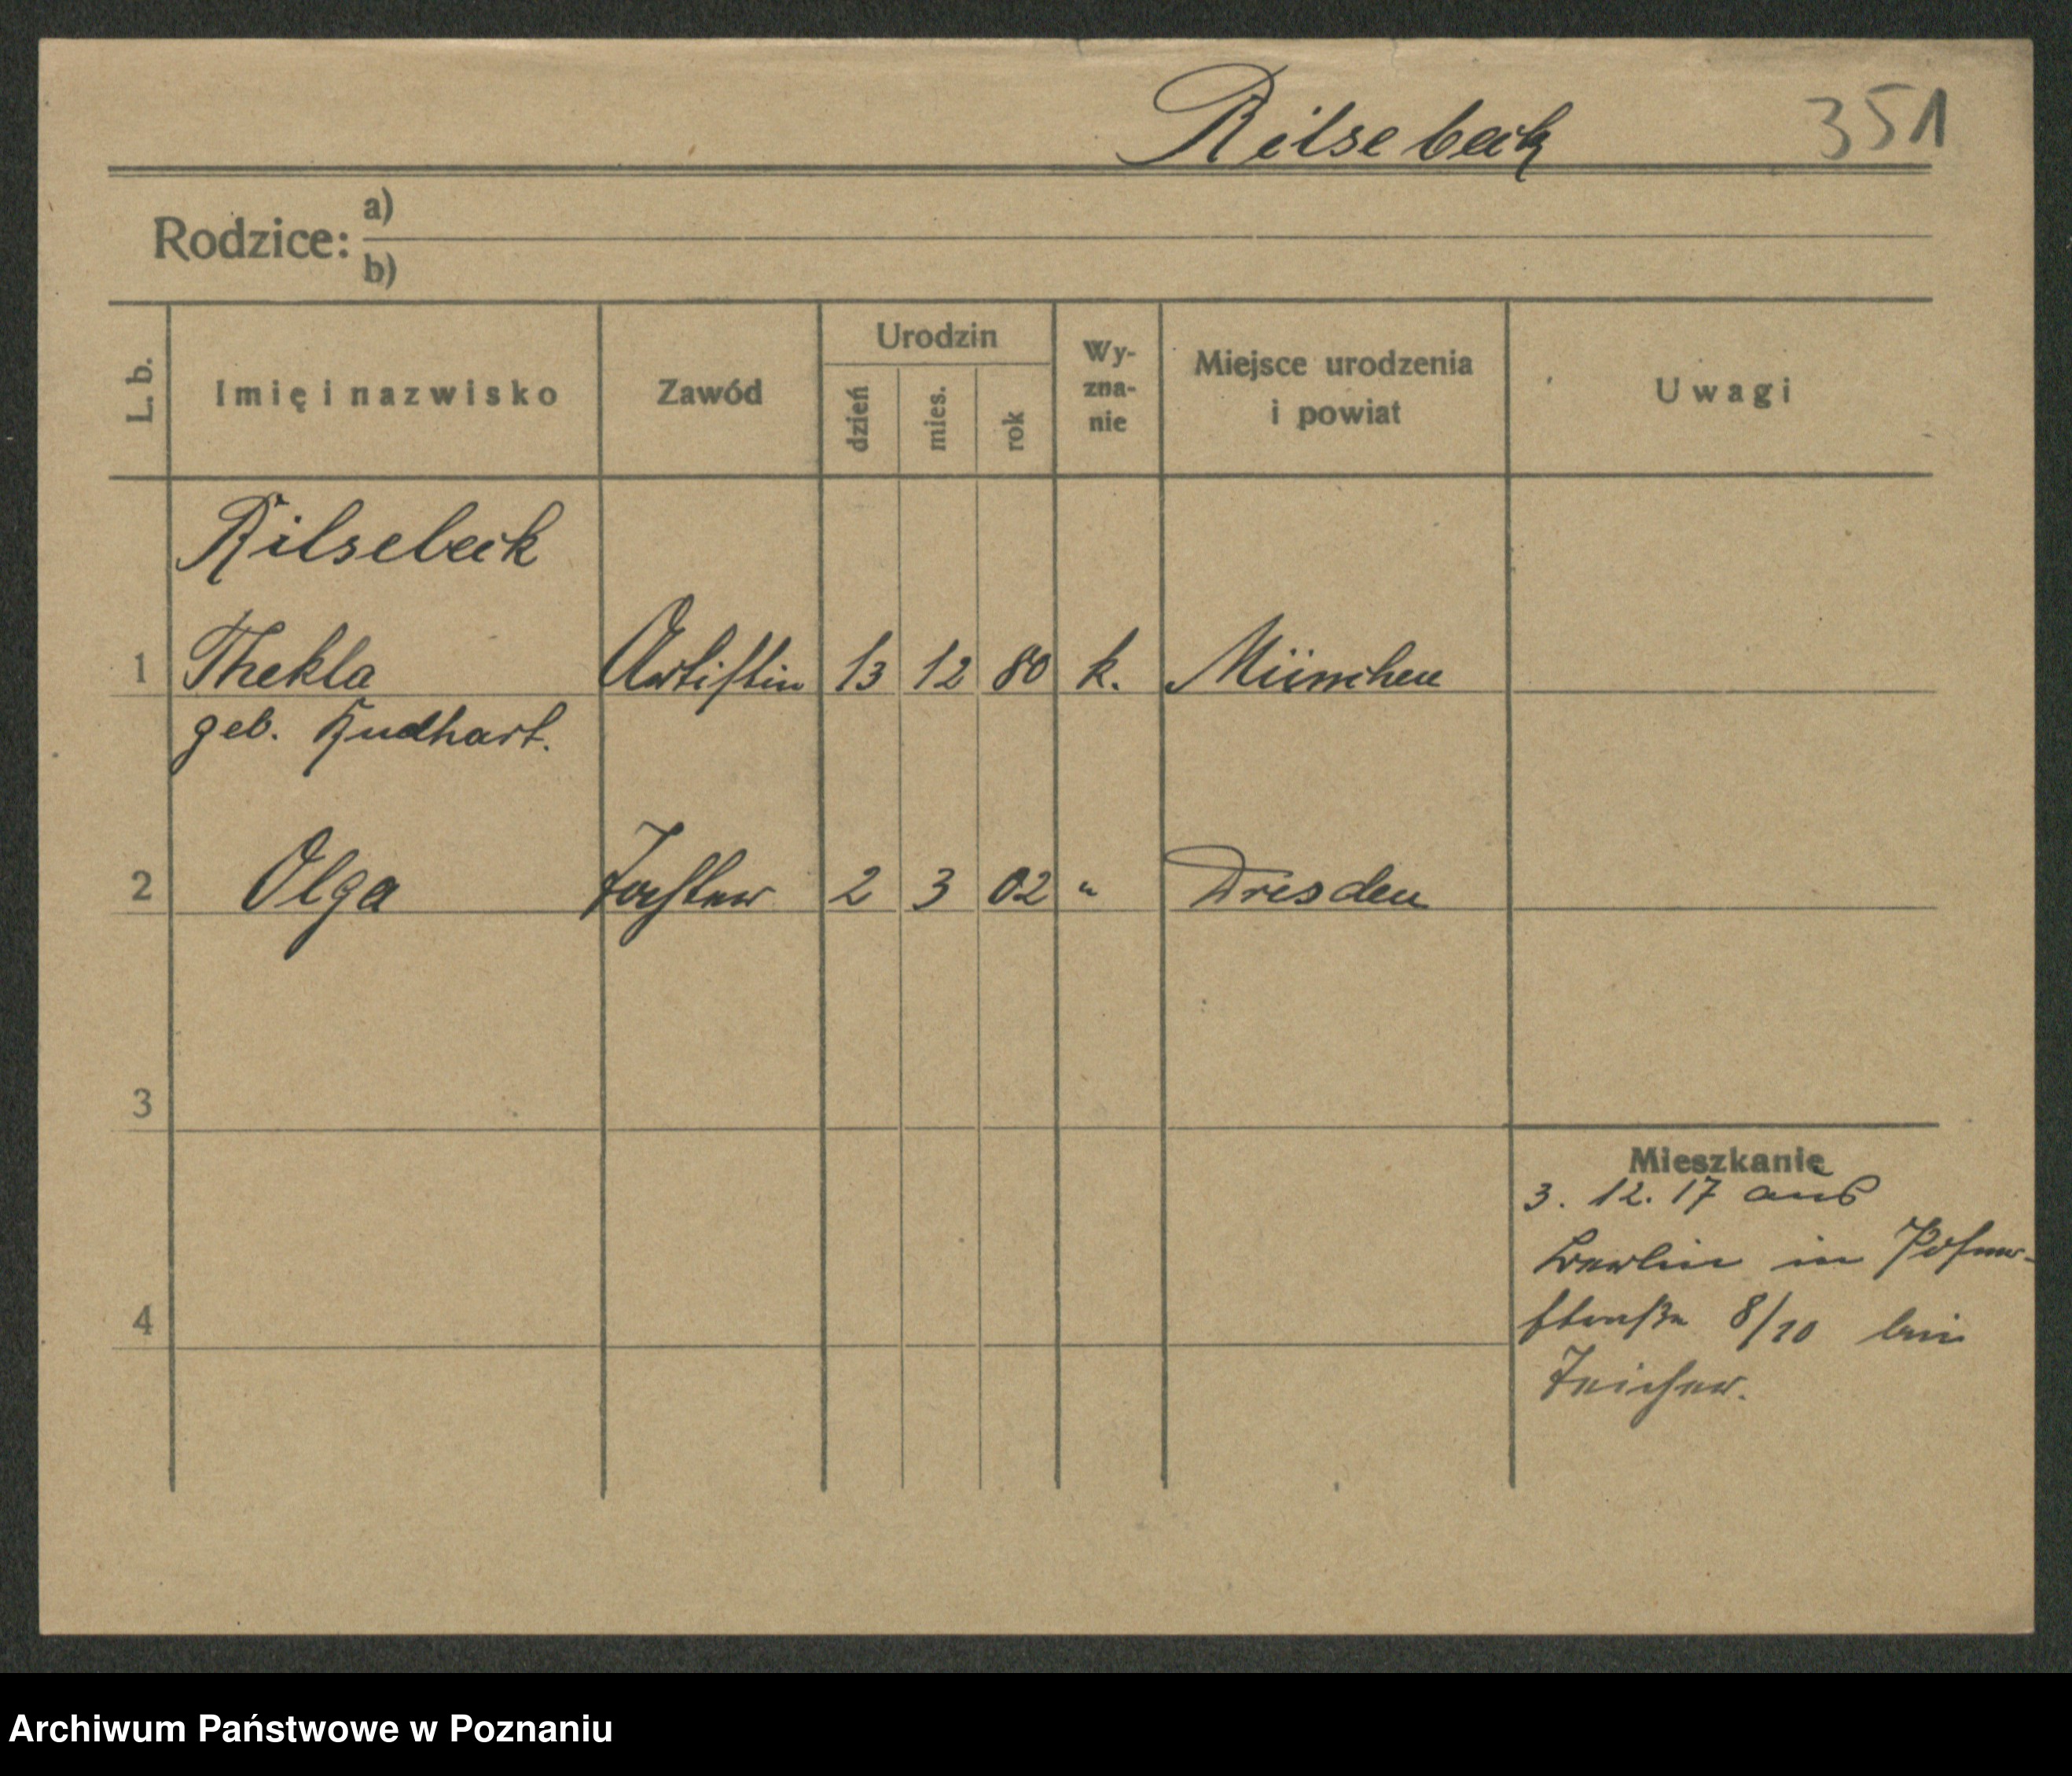 Rilsebeck 351
Rodzice: a)
b)
L. b. Imię i nazwisko Zawód Urodzin dzień mies. rok Wyznanie Miejsce urodzenia i powiat Uwagi
Rilsebeck
1 Thekla Artistin 13 12 80 k. München
geb. Rudhart.
2 Olga Tochter 2 3 02 " Dresden
3
Mieszkanie
3. 12. 17 aus
Berlin in
4
straße 8/10 bei